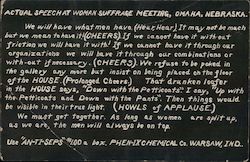 ACTUAL SPEECH AT WOMAN SUFFRAGE MEETING, OMAHA, NEBRASKA.
We will have what men have (Hear, Hear). It may not be much
but we mean to have it. (CHEERS) If we cannot have it without
friction we will have it with! If we cannot have it through our
organizations we will have it through our combinations or
with-out if necessary. (CHEERS). We refuse to be poked in
the gallery any more but insist on being placed on the floor
of the HOUSE. (Prolonged Cheers). That drunken loafer
in the HOUSE says, "Down with the Petticoats." I say, "Up
with the Petticoats and Down with the Pants. Then things would
be visible in their true light. (HOWLS of APPLAUSE)
We must get together. As long as women are split up,
as we are, the men will always be on top.
Use "AN-TI-SEPS" $1.00 a box. PHENIX CHEMICAL Co. WARSAW, IND.